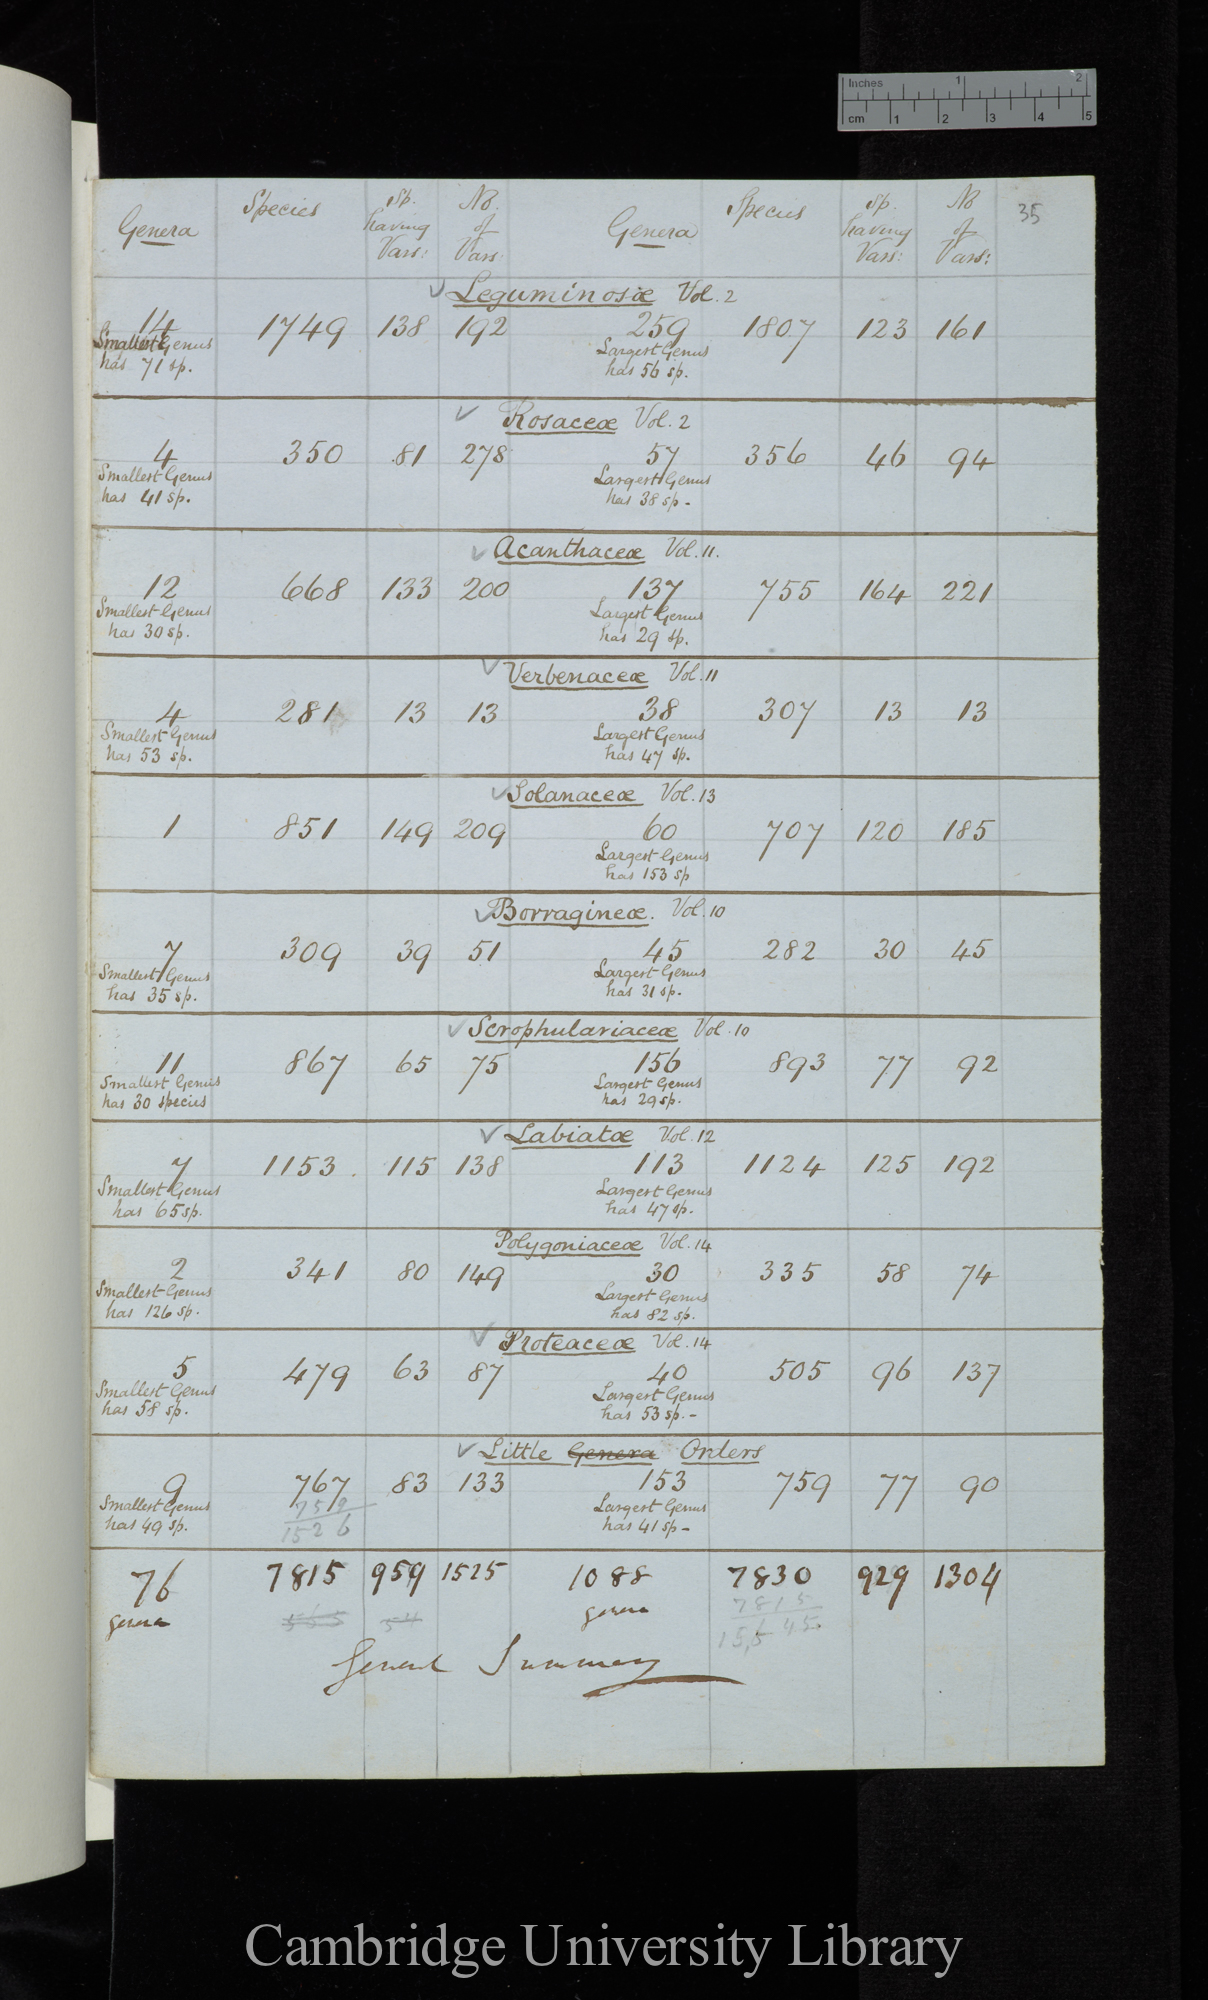 Inches 1 2
cm 1 2 3 4 5
35
Genera Species Sp. having Vars: No. of Vars: Genera Species Sp. having Vars: No of Vars:
✓ Leguminosiæ Vol. 2
14 1749 138 192 259 1807 123 161
Smallest Genus Largest Genus
has 71 sp. has 56 sp.
✓ Rosaceæ Vol. 2
4 350 81 278 57 356 46 94
Smallest Genus Largest Genus
has 41 sp. has 38 sp.-
✓ Acanthaceæ Vol. 11.
12 668 133 200 137 755 164 221
Smallest Genus Largest Genus
has 30 sp. has 29 sp.
✓ Verbenaceæ Vol. 11
4 281 13 13 38 307 13 13
Smallest Genus Largest Genus
has 53 sp. has 47 sp.
✓ Solanaceæ Vol. 13
1 851 149 209 60 707 120 185
Largest Genus
has 153 sp
✓ Borragineæ. Vol. 10
7 309 39 51 45 282 30 45
Smallest Genus Largest Genus
has 35 sp. has 31 sp.
✓ Scrophulariaceæ Vol. 10
11 867 65 75 156 893 77 92
Smallest Genus Largest Genus
has 30 species has 29 sp.
✓ Labiatæ Vol. 12
7 1153 115 138 113 1124 125 192
Smallest Genus Largest Genus
has 65 sp. has 47 sp.
Polygoniaceæ Vol. 14
2 341 80 149 30 335 58 74
Smallest Genus Largest Genus
has 126 sp. has 82 sp.
✓ Proteaceæ Vol. 14
5 479 63 87 40 505 96 137
Smallest Genus Largest Genus
has 58 sp. has 53 sp.-
✓ Little Genera Orders
9 767 83 133 153 759 77 90
Smallest Genus 759 Largest Genus
has 49 sp. 1526 has 41 sp-
76 7815 959 1525 1088 7830 929 1304
genera 54 genera 7815
15,645
General Summary
Cambridge University Library